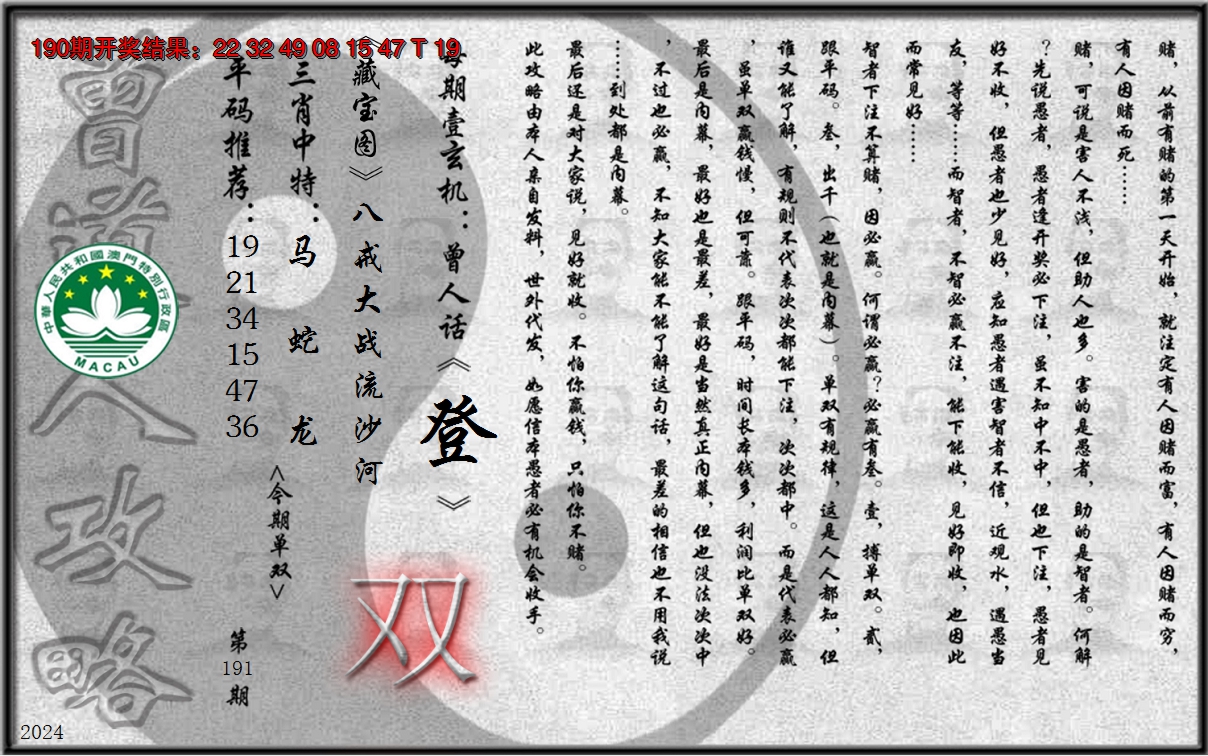 190期开奖结果：22 32 49 08 15 47 T 19
赌，从前有赌的第一天开始，就注定有人因赌而富，有人因赌而穷，
有人因赌而死……
赌，可说是害人不浅，但助人也多。害的是愚者，助的是智者。何解
？先说愚者，愚者逢开奖必下注，虽不知中不中，但也下注，愚者见
好不收，但愚者也少见好，应知愚者遇害智者不信，近观水，遇愚当
友，等等……而智者，不智必赢不注，能下能收，见好即收，也因此
而常见好……
智者下注不算赌，因必赢。何谓必赢？必赢有叁。壹，搏单双。贰，
跟平码。叁，出千（也就是内幕）。单双有规律，这是人人都知，但
谁又能了解，有规则不代表次次都能下注，次次都中。而是代表必赢
，虽单双赢钱慢，但可靠。跟平码，时间长本钱多，利润比单双好。
最后是内幕，最好也是最差，最好是当然真正内幕，但也没法次次中
，不过也必赢，不知大家能不能了解这句话，最差的相信也不用我说
……到处都是内幕。
最后还是对大家说，见好就收。不怕你赢钱，只怕你不赌。
此攻略由本人亲自发料，世外代发，如愿信本愚者必有机会收手。
每期壹玄机：曾人话《登》
《藏宝图》八戒大战流沙河
双
三肖中特：马 蛇 龙
<今期单双>
平码推荐：19 21 34 15 47 36
第191期
曾道人攻略
中華人民共和國澳門特別行政區
MACAU
2024